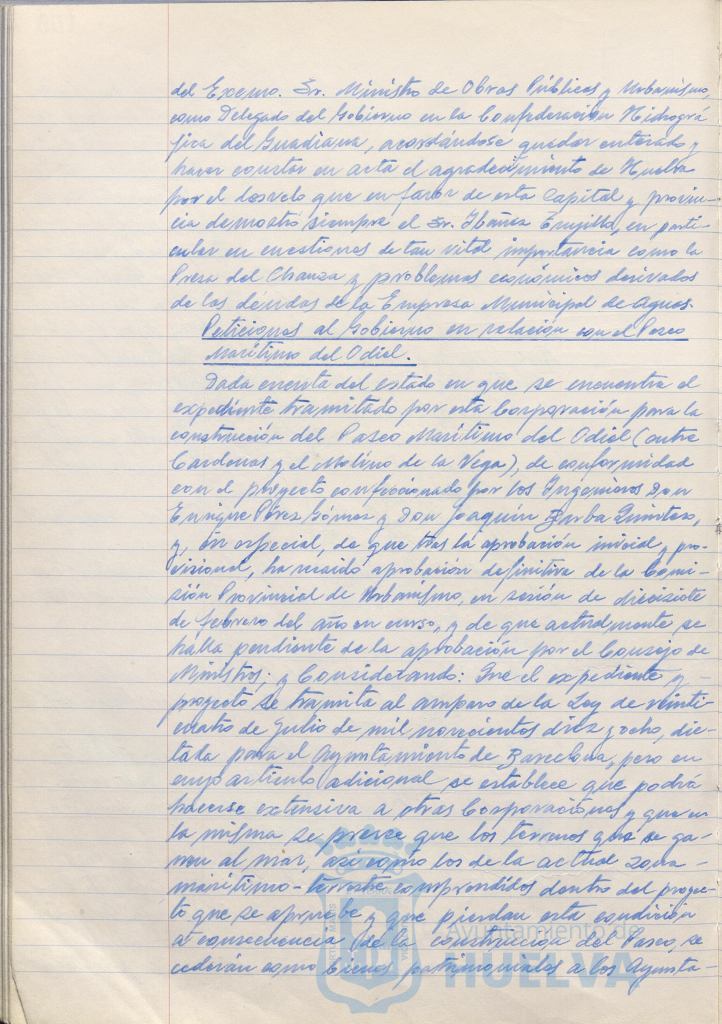 del Excmo. Sr. Ministro de Obras Públicas y Urbanismo,
como Delegado del Gobierno en la Confederación Hidrográ
fica del Guadiana, acordándose quedar enterado y
hacer constar en acta el agradecimiento de Huelva
por el desvelo que en favor de esta Capital y provin-
cia demostró siempre el Sr. Ibáñez Trujillo, en parti-
cular en cuestiones de tan vital importancia como la
Presa del Chanza y problemas económicos derivados
de las deudas de la Empresa Municipal de Aguas.
Peticiones al Gobierno en relación con el Paseo
Marítimo del Odiel.
Dada cuenta del estado en que se encuentra el
expediente tramitado por esta Corporación para la
construcción del Paseo Marítimo del Odiel (entre
Cardenas y el Molino de la Vega), de conformidad
con el proyecto confeccionado por los Ingenieros Don
Enrique Pérez Gómez y Don Joaquín Barba Quintero,
y, en especial, de que tras la aprobación inicial y pro-
visional, ha recaido aprobación definitiva de la Comi-
sión Provincial de Urbanismo, en sesión de diecisiete
de febrero del año en curso, y de que actualmente se
halla pendiente de la aprobación por el Consejo de
Ministros; y Considerando: Que el expediente y
proyecto se tramita al amparo de la Ley de veinti
cuatro de Julio de mil novecientos diez y ocho, dic-
tada para el Ayuntamiento de Barcelona, pero en
cuyo artículo adicional se establece que podrá
hacerse extensiva a otras Corporaciones y que en
la misma se prevee que los terrenos que se ga-
nen al mar, así como los de la actual zona
marítimo-terrestre comprendidos dentro del proyec-
to que se apruebe y que pierdan esta condición
a consecuencia de la construcción del Paseo, se
cederán como bienes patrimoniales a los Ayunta-
Ayuntamiento de
HUELVA